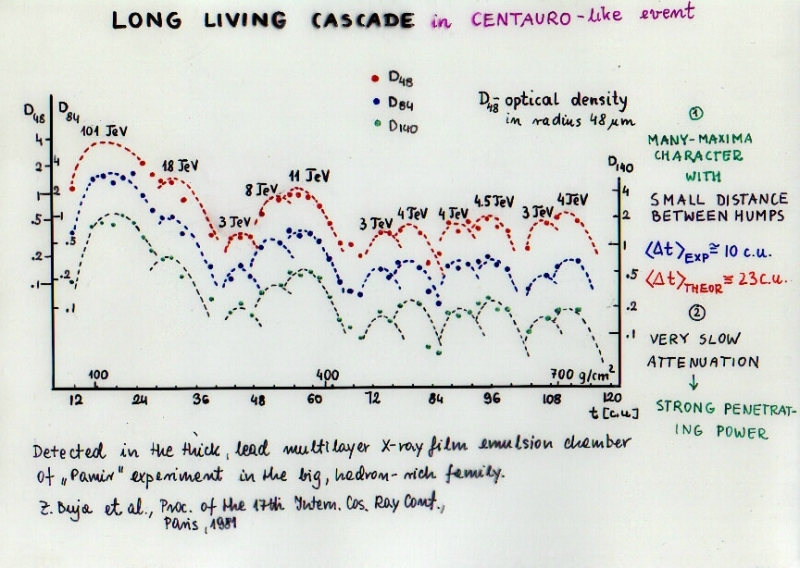 LONG LIVING CASCADE in CENTAURO-like event
D48
D84
D140
D48 - optical density
in radius 48 μm
D48 D84
D140
4
2
1
.5
.2
.1
4
2
1
.5
.2
.1
4
2
1
.5
.2
.1
101 TeV
18 TeV
3 TeV
8 TeV
11 TeV
3 TeV
4 TeV
4 TeV
4.5 TeV
3 TeV
4 TeV
100 400 700 g/cm²
12 24 36 48 60 72 84 96 108 120
t [c.u.]
①
MANY-MAXIMA
CHARACTER
WITH
SMALL DISTANCE
BETWEEN HUMPS
⟨Δt⟩EXP ≅ 10 c.u.
⟨Δt⟩THEOR ≅ 23 c.u.
②
VERY SLOW
ATTENUATION
↓
STRONG PENETRAT-
ING POWER
Detected in the thick, lead multilayer X-ray film emulsion chamber
of „Pamir" experiment in the big, hadron-rich family.
Z. Buja et al., Proc. of the 17th Intern. Cos. Ray Conf.,
Paris, 1981